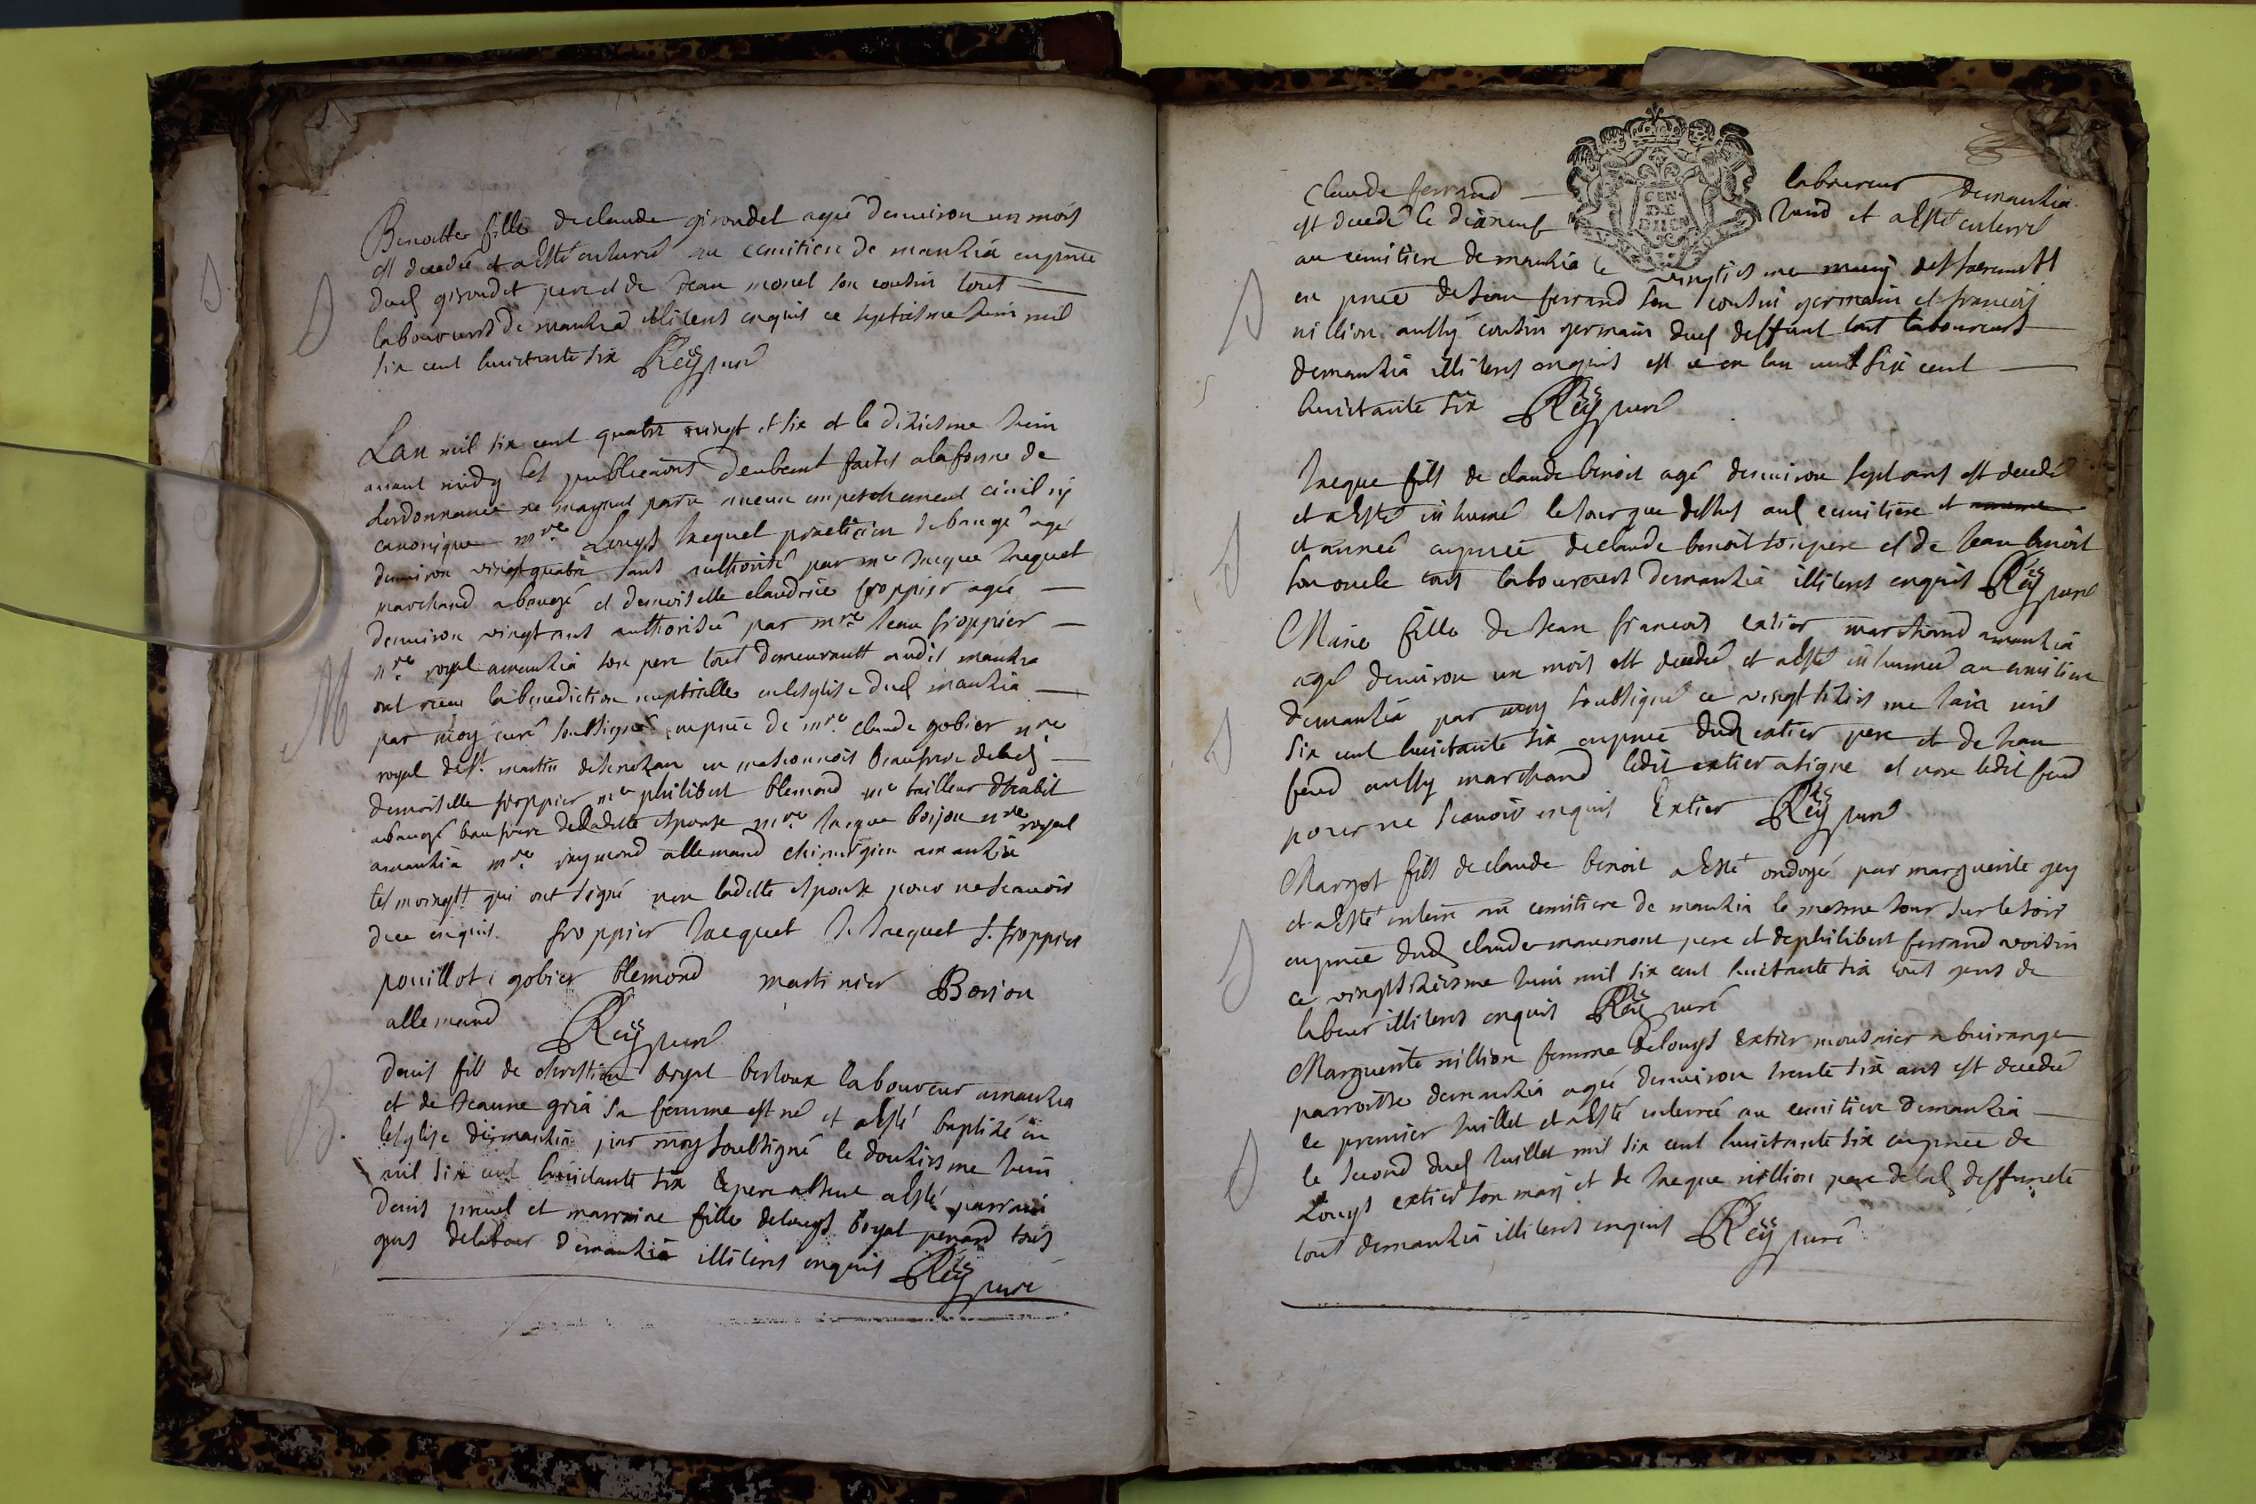 Benoitte fille de claude girondet agée denuiron un mois
est decedée et a esté enterré au cemitiere de manzia en pnce
dud girondet pere et de Jean monet son cousin tout
laboureurs de manzia illiterés enquis ce septiesme Juin mil
six cent huictante six Reÿ curé
Lan mil six cent quatre vingt et six et le dixiesme Juin
auant midy les publications deubemt faites a la forme de
lordonnance ne sayant parue aucun empeschement ciuil ny
canonique mre Louys Jacquet practicien de baugé agé
denuiron vingt quatre ans authorisé par mre Jacque Jacquet
marchand a baugé et demoiselle claudine froppier agée
denuiron vingt ans authorisée par mre Jean froppier
nre royal a manzia son pere tout demeurantt audit manzia
ont receu la benediction nuptialle en lesglise dud manzia
par moy curé soubsigné en pnce de mre claude gobier nre
royal de st martin de senozan en masconnois beaufrere de lad
demoiselle froppier mre philibert blemond me tailleur dhabit
a baugé beau frere de laditte espouse mre Jacque borjon nre royal
a manzia mre raymond allemand chirurgien a manzia
tesmoingtt qui ont signé non laditte espouse pour ne scauoir
de ce enquis. froppier Jacquet J. Jacquet J. froppier
pouillot gobier blemond martinier Borjon
allemand Reÿ curé
Denis fils de chrestien broyat berloux laboureur a manzia
et de Jeanne gria sa femme est né et a esté baptisé en
lesglise de manzia par moy soubsigné le douziesme Juin
mil six cent huictante six le pere absent a esté parrain
Denis pruel et marraine fille de louys broyat penard tous
gens de labeur de manzia illiterés enquis Reÿ curé
Claude ferrand laboureur de manzia
est decedé le dixneuf Juin et a esté enterré
au cemitiere de manzia le vingtiesme
en pnce de Jean ferrand son cousin germain et francois
nillion aussy cousin germain dud deffunt tout laboureurs
de manzia illiterés enquis et ce en lan mil six cent
huictante six Reÿ curé
Jacque fils de claude benoit agé denuiron sept ans est decedé
et a esté inhumé le Jour que dessus aud cemitiere et
et année en pnce de claude benoit son pere et de Jean benoit
son oncle tous laboureurs de manzia illiterés enquis Reÿ curé
Marie fille de Jean francois extier marchand a manzia
agé denuiron un mois est decedée et a esté inhumée au cemitiere
de manzia par moy soubsigné ce vingt siziesme Juin mil
six cent huictante six en pnce dud extier pere et de Jean
feud aussy marchand ledit extier a signé et non ledit feud
pour ne scauoir enquis Extier Reÿ curé
Margot fils de claude benoit a esté ondoyé par marguerite gey
et a esté enterré au cemitiere de manzia le mesme Jour sur le soir
en pnce dud claude maumont pere et de philibert ferrand voisin
ce vingtsiziesme Juin mil six cent huictante six tous gens de
labeur illiterés enquis Reÿ curé
Marguerite nillion femme de louys Extier mousnier a buirange
parroisse de manzia agée denuiron trente six ans est decedée
le premier Juillet et a esté enterrée au cemitiere de manzia
le second dud Juillet mil six cent huictante six en pnce de
Louys extier son mary et de Jacque nillion pere de lad deffuncte
tout de manzia illiterés enquis Reÿ curé